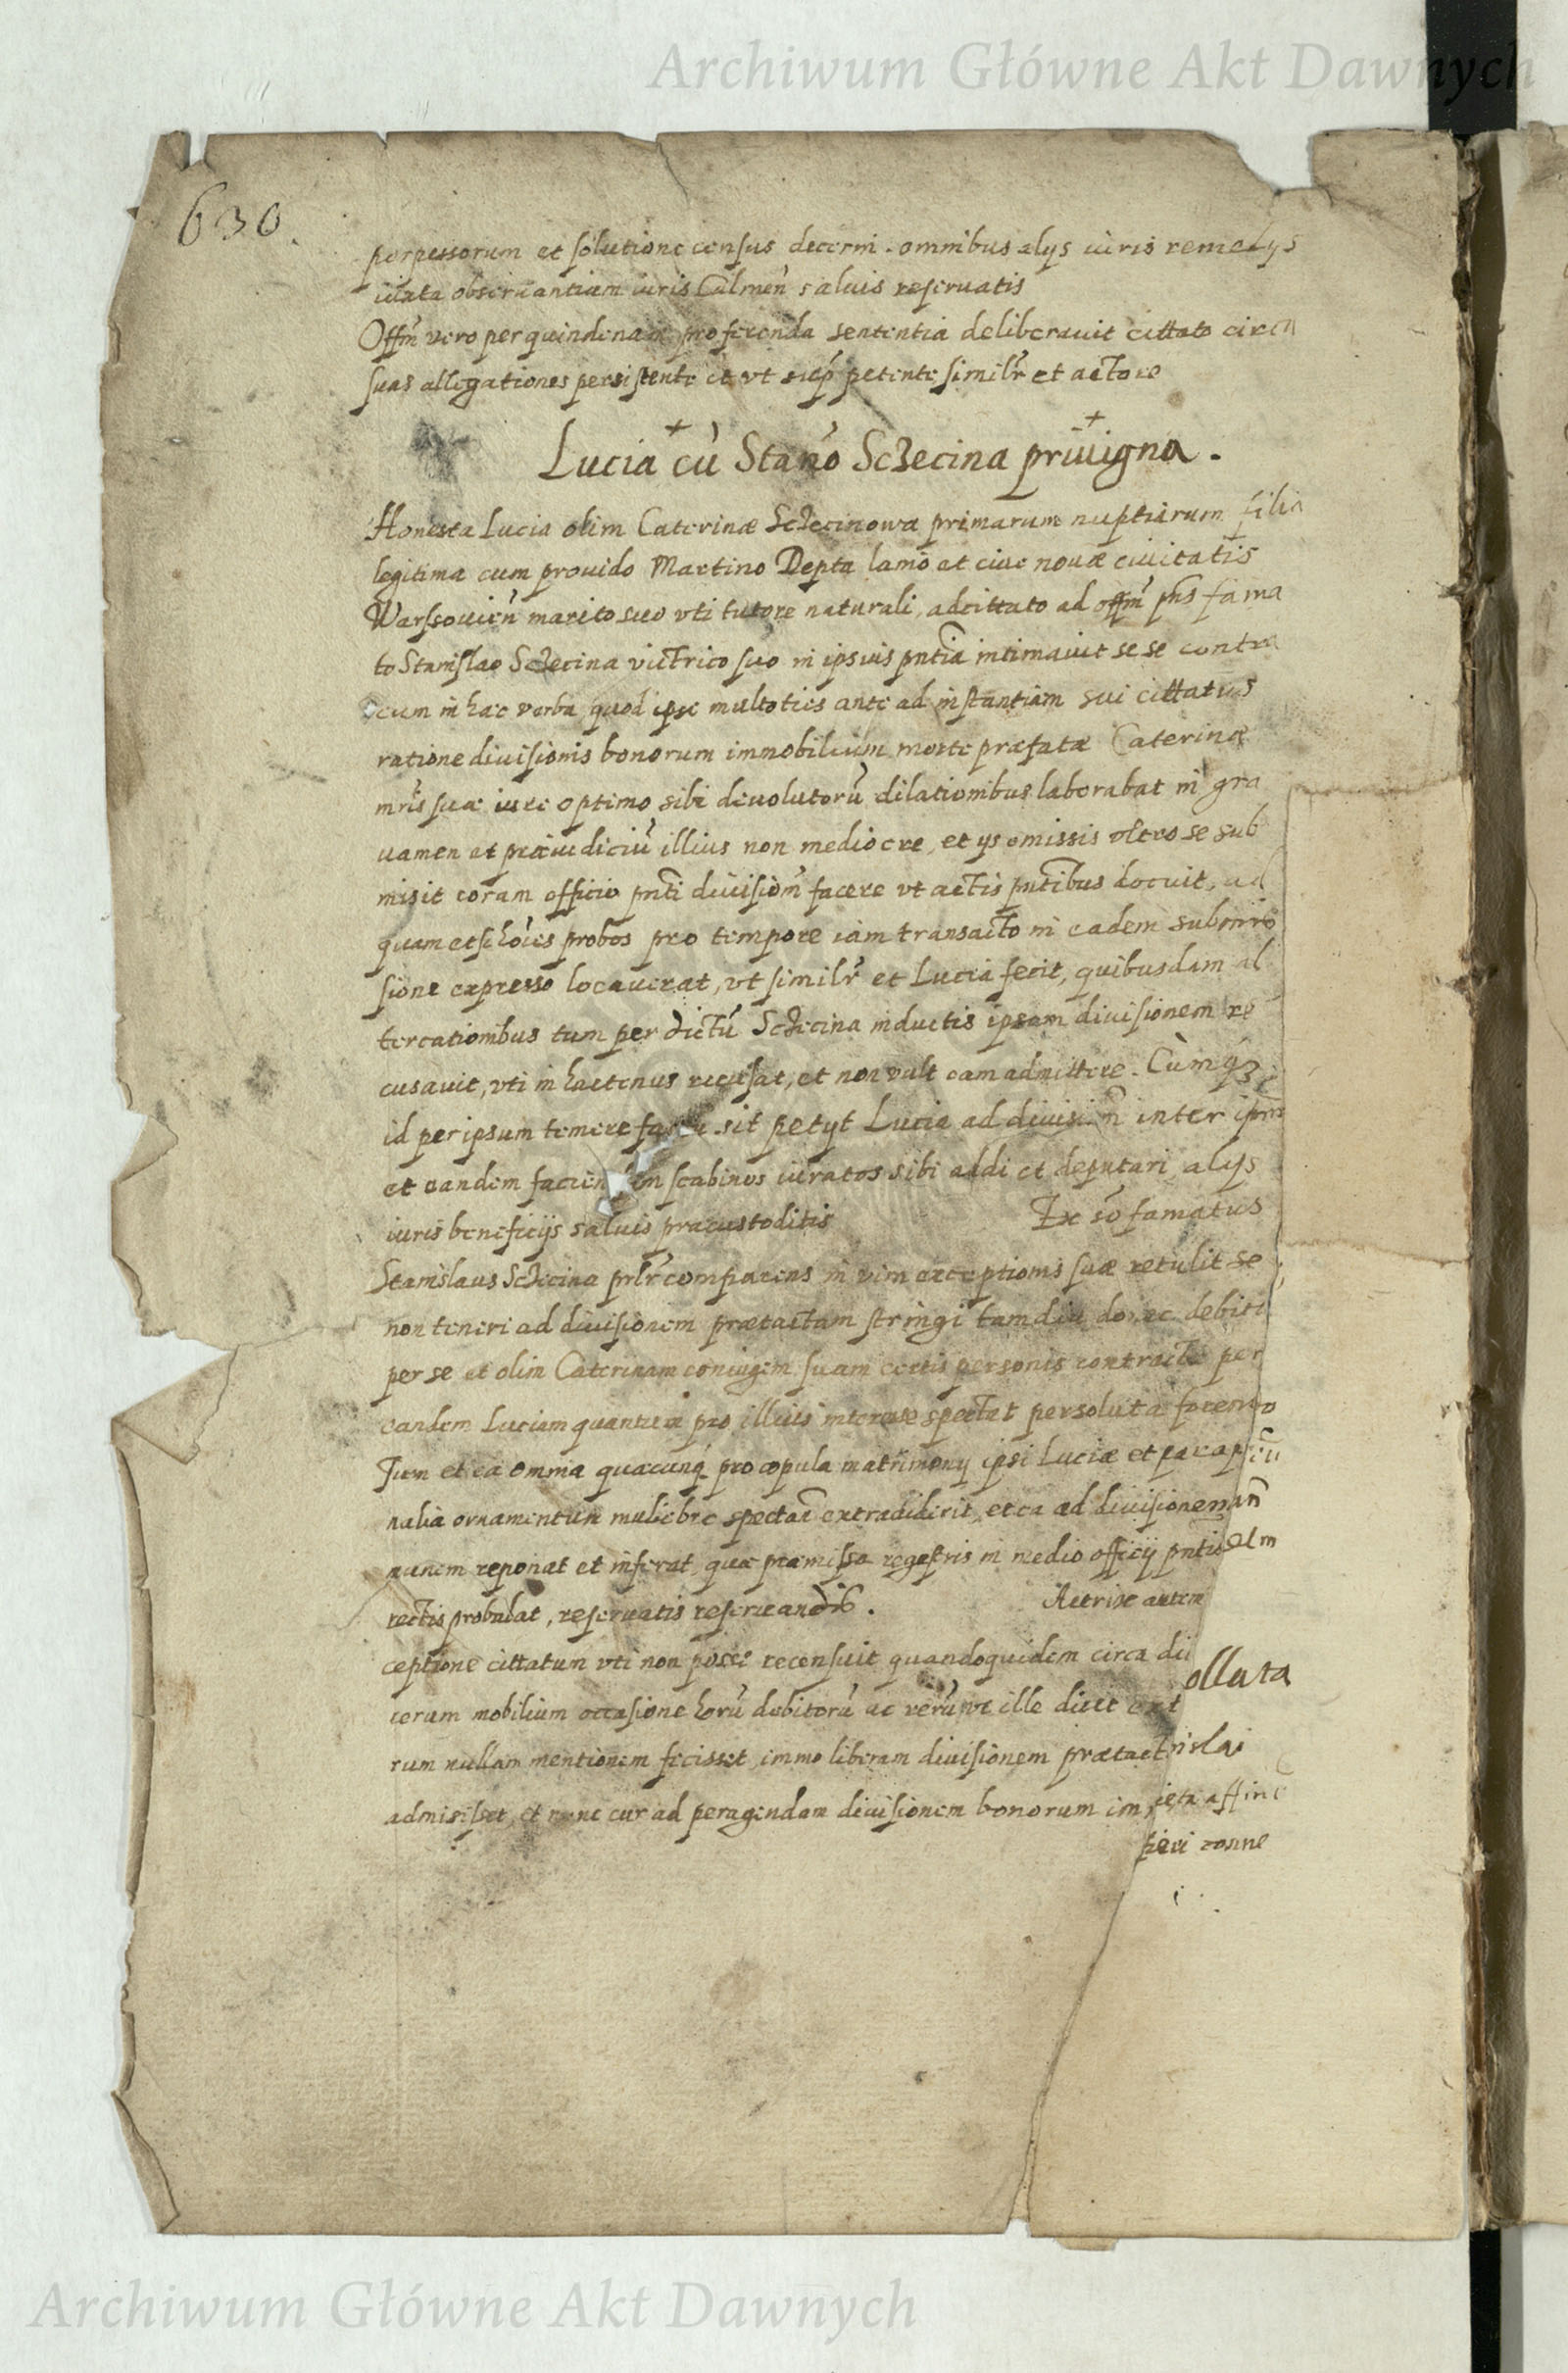 Archiwum Główne Akt Dawnych
630.
perpessorum et solutione census decerni. omnibus alys iuris remedys
iuxta observantiam iuris Culmen̄ salvis reservatis
Offm̄ vero per quindenam proferenda sententia deliberavit cittato circa
suas allegationes persistente et vt sup̄ petente similr̄ et actore
Lucia cū Stano̅ Sczecina priuigna.
Honesta Lucia olim Caterinæ Sczecinowa primarum nuptiarum filia
legitima cum prouido Martino Depta lanio̅ et ciue nouæ ciuitatis
Warssouien̄ marito suo vti tutore naturali, adcittato ad offm̄ pn̄s fama
to Stanislao Sczecina victrico suo in ipsius pn̄tia intimauit se se contra
eum in hæc verba quod ipse multoties ante ad instantiam sui cittatus
ratione diuisionis bonorum immobilium morte præfatæ Caterinæ
mr̄is suæ iure optimo sibi deuolutorū dilationibus laborabat in gra
uamen et præiudiciū illius non mediocre, et ys omissis vltro se sub
misit coram officio pn̄ti diuisiōm facere vt actis pn̄tibus docuit, ad
quam etsi hōies probos pro tempore iam transacto in eadem submis
sione expresso locauerat, vt similr̄ et Lucia fecit, quibusdam al
tercationibus tum per dictū Sczecina inductis ipsam diuisionem re
cusauit, vti in hactenus recusat, et non vult eam admittere. Cumqz
id per ipsum temere sit petyt Lucia ad diuisiōm inter ipm̄
et eandem scabinos iuratos sibi addi et deputari alys
iuris beneficijs saluis præcustoditis Ex sō famatus
Stanislaus Sczecina prlr̄ comparens in vim exceptionis suæ retulit se
non teneri ad diuisionem prætactam stringi tamdiu donec debiti
per se et olim Caterinam coniugem suam certis personis contracta per
eandem Luciam quantum pro illius interesse spectat persoluta forent
Tum et ea omnia quæcunq̄ pro copula matrimony ipsi Luciæ et parapher
nalia ornamentum muliebre spectan̄ extradiderit, et ea ad diuisionem
nunem reponat et inferat, quæ præmissa regestris in medio officij pn̄tis
rectis probabat, reseruatis reseruandis. Actrice autem
ceptione cittatum vti non posse recensuit quandoquidem circa diui
rerum mobilium occasione horū debitorū ac rerū vt ille dicit ext
rum nullam mentionem fecisset, immo liberam diuisionem prætact
admisisset, et nunc cur ad peragendam diuisionem bonorum im
ollata
nislai
ieta affine
fieri conne
Archiwum Główne Akt Dawnych